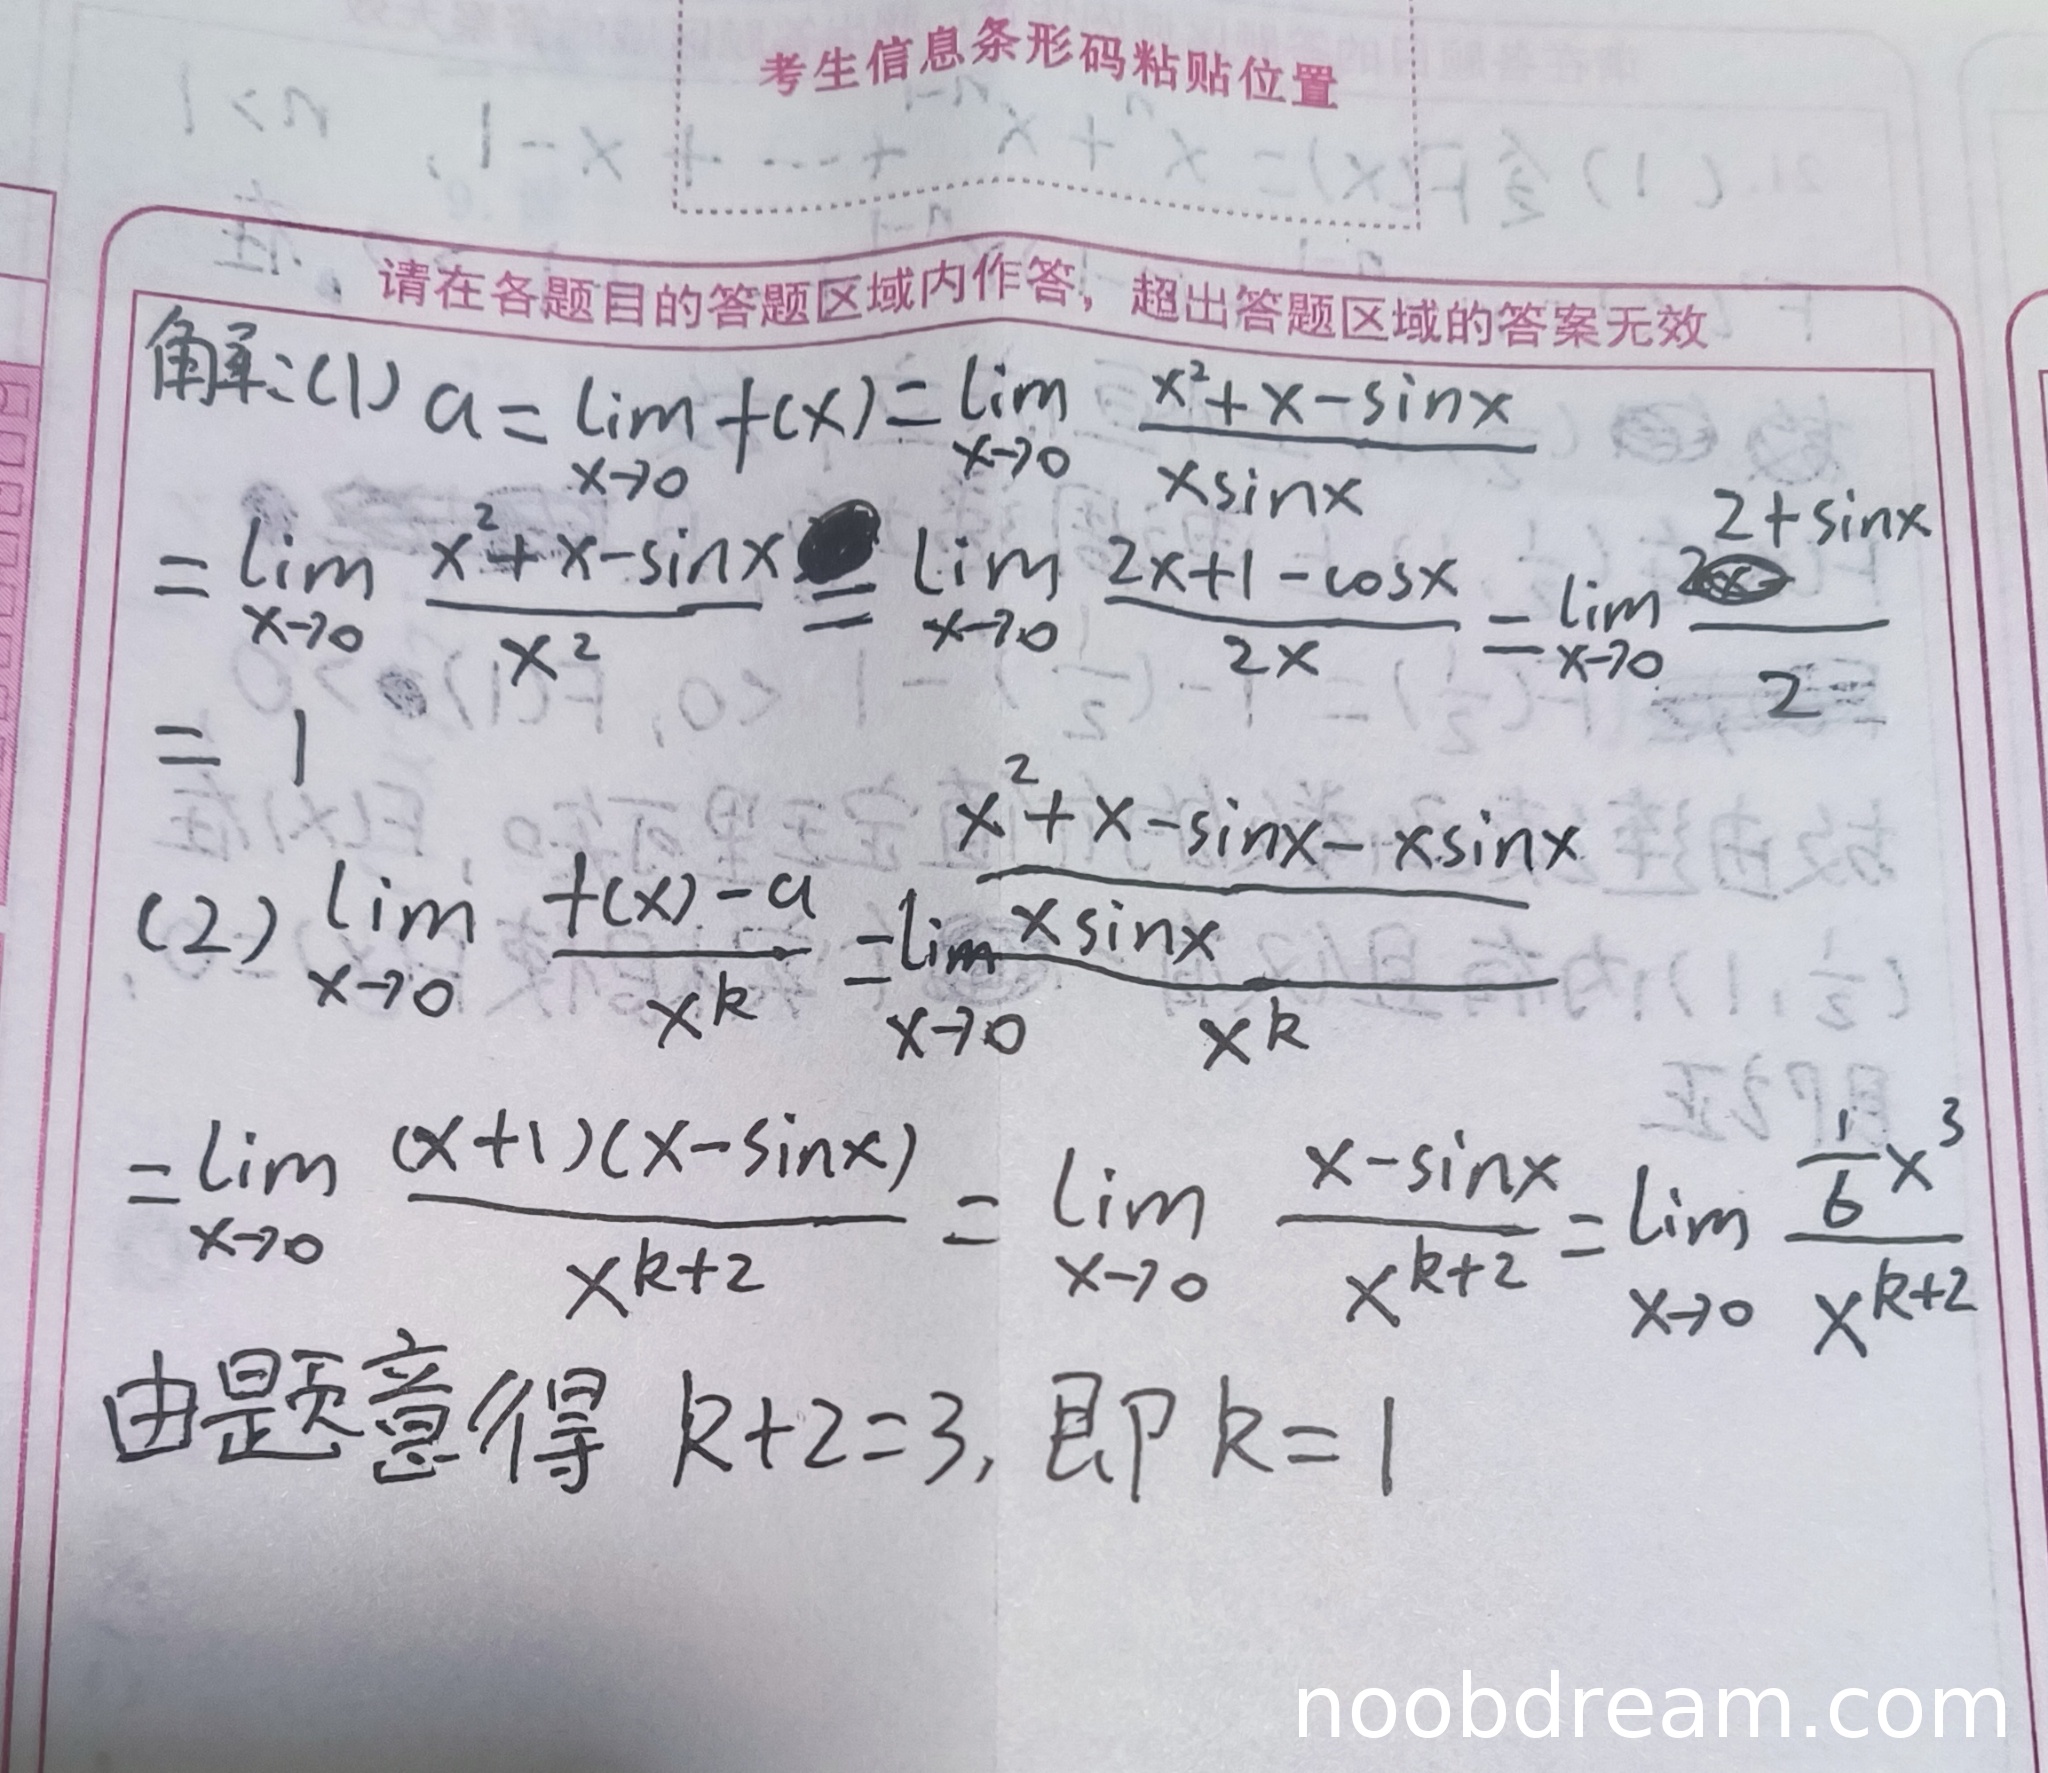 考生信息条形码粘贴位置
请在各题目的答题区域内作答，超出答题区域的答案无效
解:(1) a = lim_{x→0} f(x) = lim_{x→0} (x²+x-sinx)/(xsinx)
= lim_{x→0} (x²+x-sinx)/x² = lim_{x→0} (2x+1-cosx)/(2x) = lim_{x→0} (2+sinx)/2
= 1
(2) lim_{x→0} (f(x)-a)/x^k = lim_{x→0} ((x²+x-sinx-xsinx)/(xsinx))/x^k
= lim_{x→0} ((x+1)(x-sinx))/x^{k+2} = lim_{x→0} (x-sinx)/x^{k+2} = lim_{x→0} (1/6 x³)/x^{k+2}
由题意得 k+2=3, 即 k=1
noobdream.com